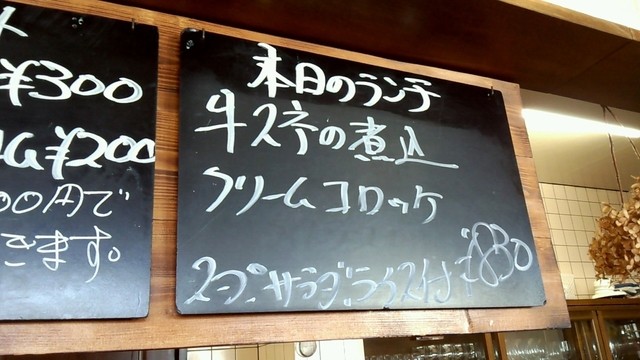 ト
¥300
G ¥200
00円で
きます。
本日のランチ
牛スネの煮込
クリームコロッケ
スープ.サラダ.ライス付 ¥830